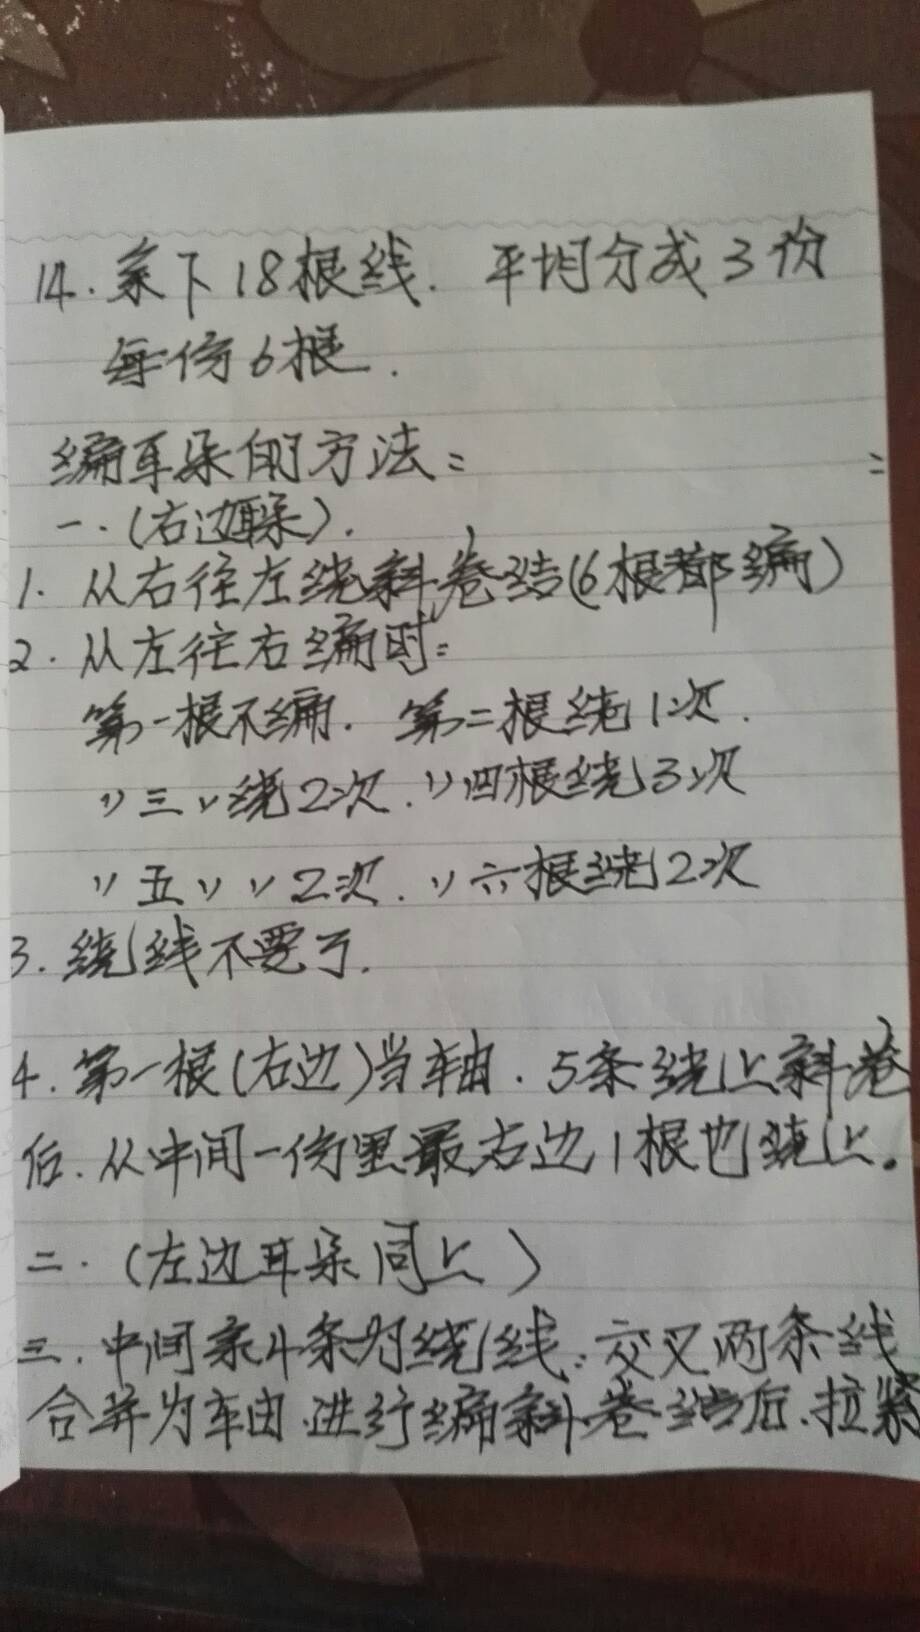 14.余下18根线.平均分成3份
每份6根.
编耳朵的方法:
一.(右边耳朵).
1.从右往左绕斜卷结(6根都编)
2.从左往右编时:
第一根不编.第二根绕1次.
〃三〃绕2次.〃四根绕3次
〃五〃〃2次.〃六根绕2次
3.绕线不要了.
4.第一根(右边)当轴.5条绕上斜卷
后.从中间一份里最右边1根也绕上。
二.(左边耳朵同上)
三.中间余4条为绕线:交叉两条线
合并为轴.进行编斜卷结后.拉紧